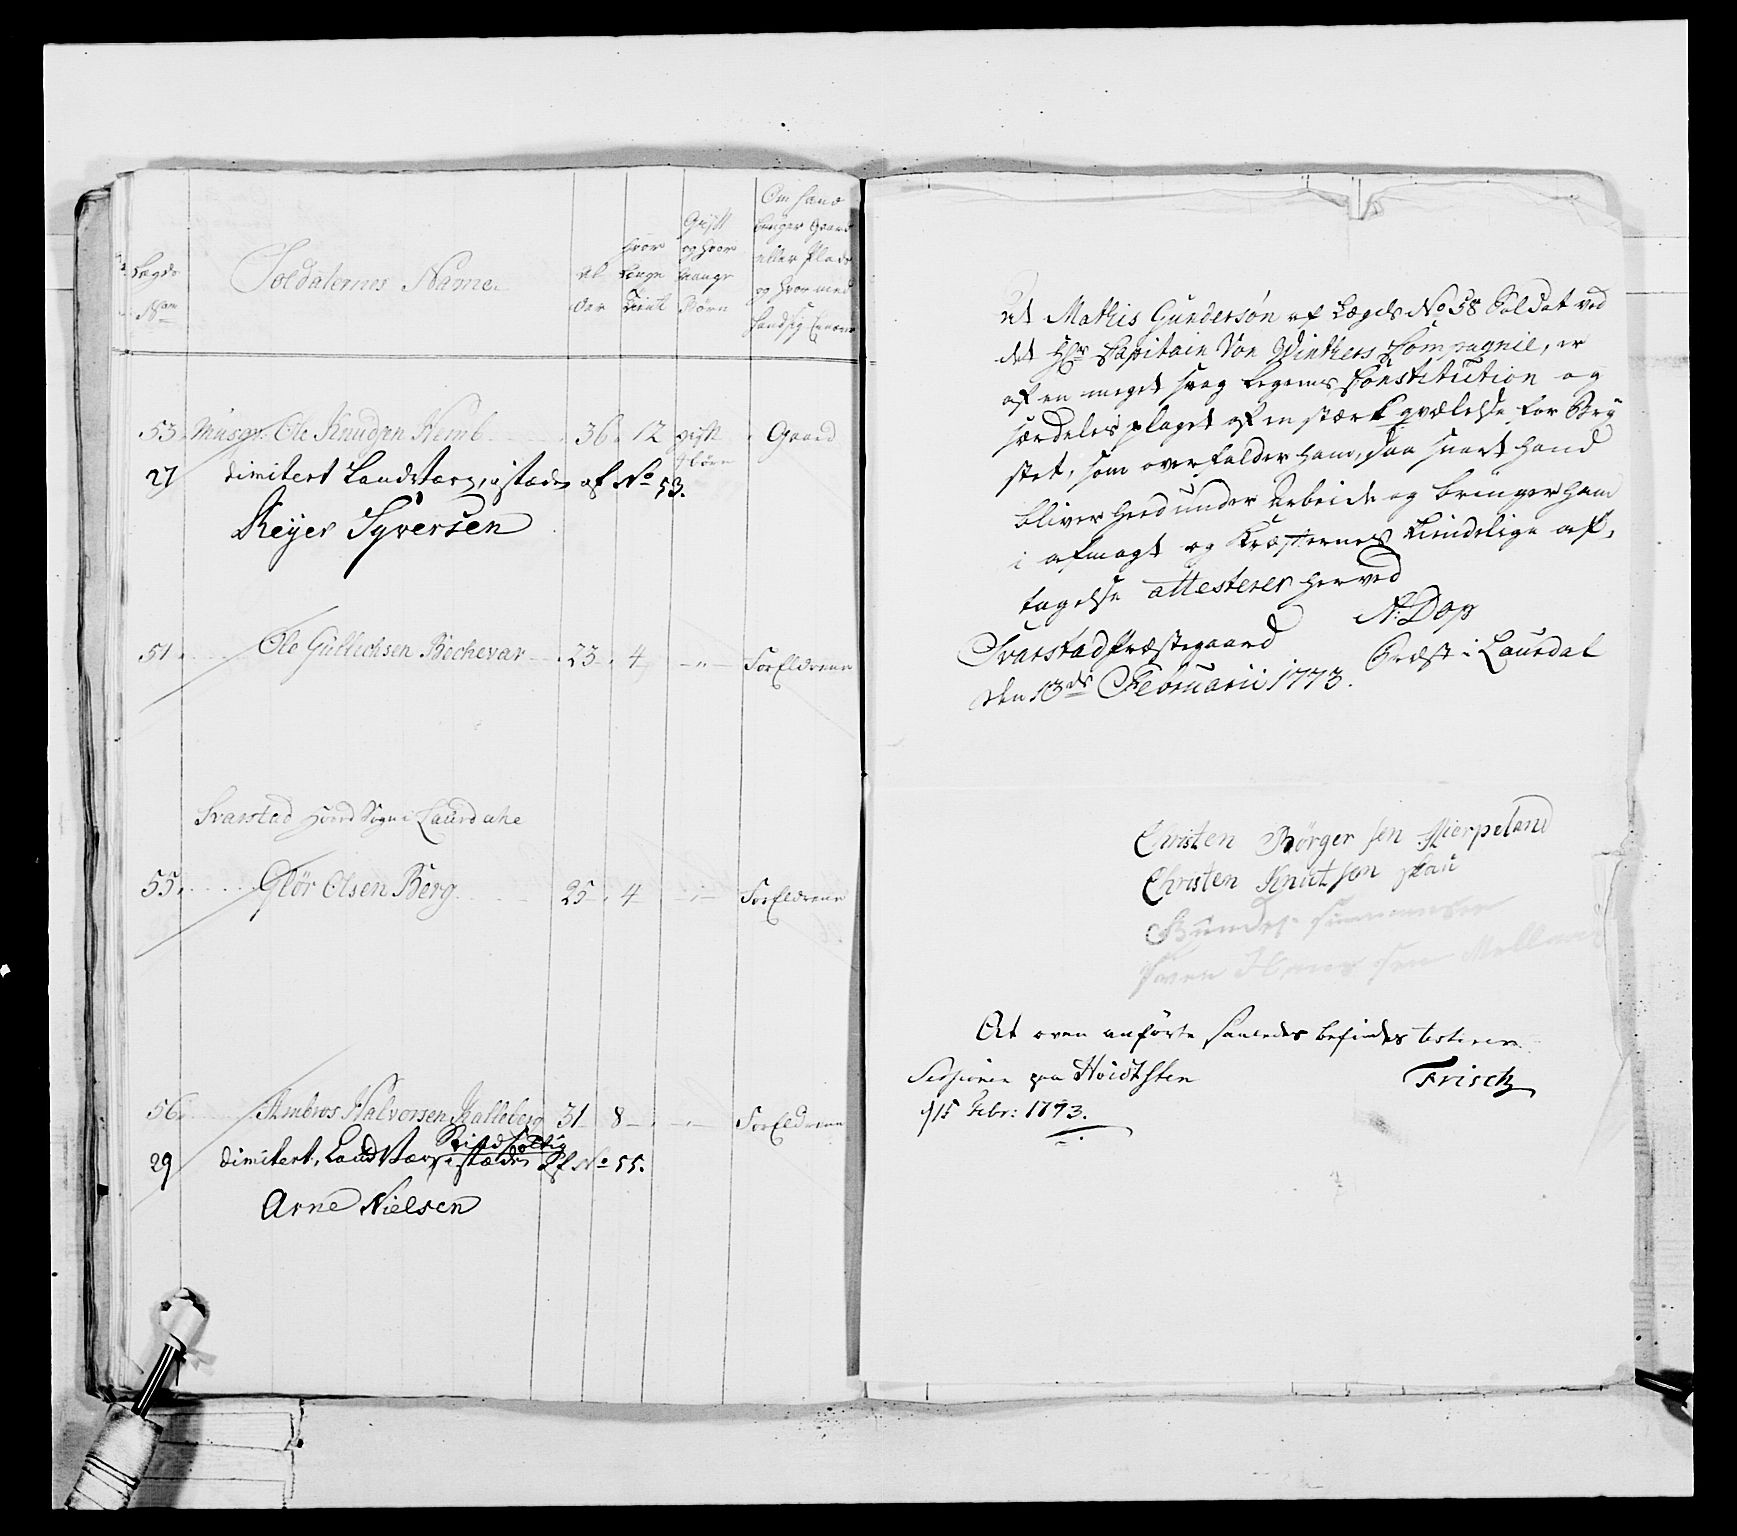 Lægds
Nom
Soldaternes Nafne
Al
der
Hvor
Længe
Tient
Gift
og Hvor
mange
Børn
Om Hand
bruger Gaard
eller Plads
og Hvormed
Hand sig Ernærer
53. Musqr. Ole Knudsen Nemb 36. 12 gift Gaard
Børn
27 dimitert Landværn, istæden af No 53.
Reyer Syversen
51. Ole Gullechsen Bechevar 23. 4 - " - ForEldrene
Svarstad Hoved Sogn i Laurdahl
55. Glør Olsen Berg 25. 4 - " - ForEldrene
56. Ambros Halvorsen Kalleberg 31 8 - " - ForEldrene
29 dimitert, Landværn, istæden af No 55.
Arne Nielsen
At Mathis Gundersøn af Lægds No 58 Soldat ved
det Hr Capitain Von Winthers Compagnie, er
af en meget svag Legems Constitution og
særdeles plaget af en stærk qvælelse for Bry
stet, som overfalder ham, saa snart hand
bliver heed under Arbeide og bringer ham
i afmagt og Kræfternes kiendelige af,
tagelse attesterer herved
N: Dop
Svarstad Præstegaard Præst i Laurdal
den 13de Februarii 1773.
Christen Børger sen Hierpeland
Christen Knut søn skau
Sven Hans sen Melland
At oven anførte saaledes befindes testerer
Sessionen paa Hvidtsten Frisch
d 15 Febr: 1793.